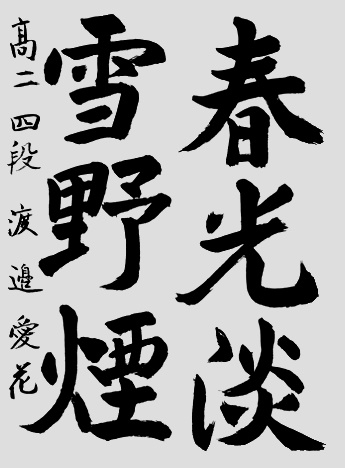 春光淡
雪野煙
高二 四段 渡邉 愛花